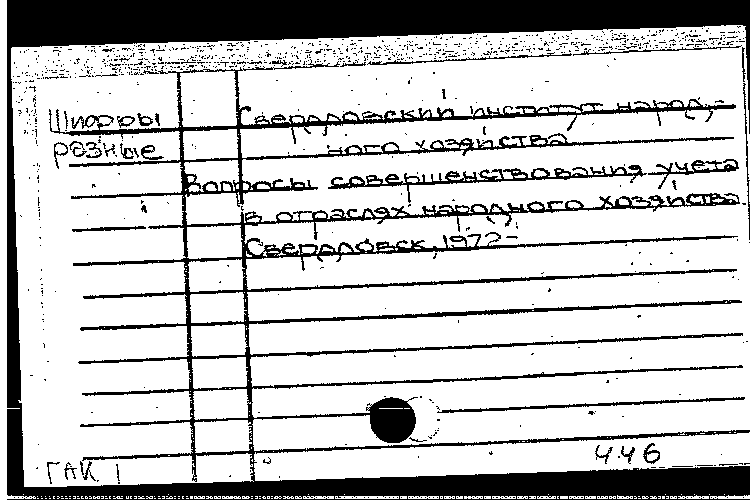 Шифры Свердловский институт народ-
розные ного хозяйства
Вопросы совершенствования учета
в отраслях народного хозяйства
Свердловск, 1972-
ГАК 446